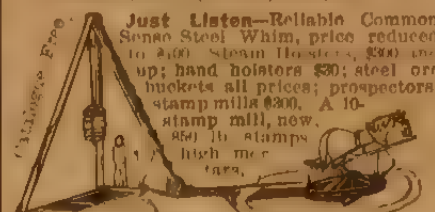 Catalogue Free.
Just Listen—Reliable Common
Sense Steel Whim, price reduced
to Steam Hoisters, $300 and
up; hand hoisters $30; steel ore
buckets all prices; prospectors'
stamp mills $300. A 10-
stamp mill, new,
850 lb stamps
high mor
tars,